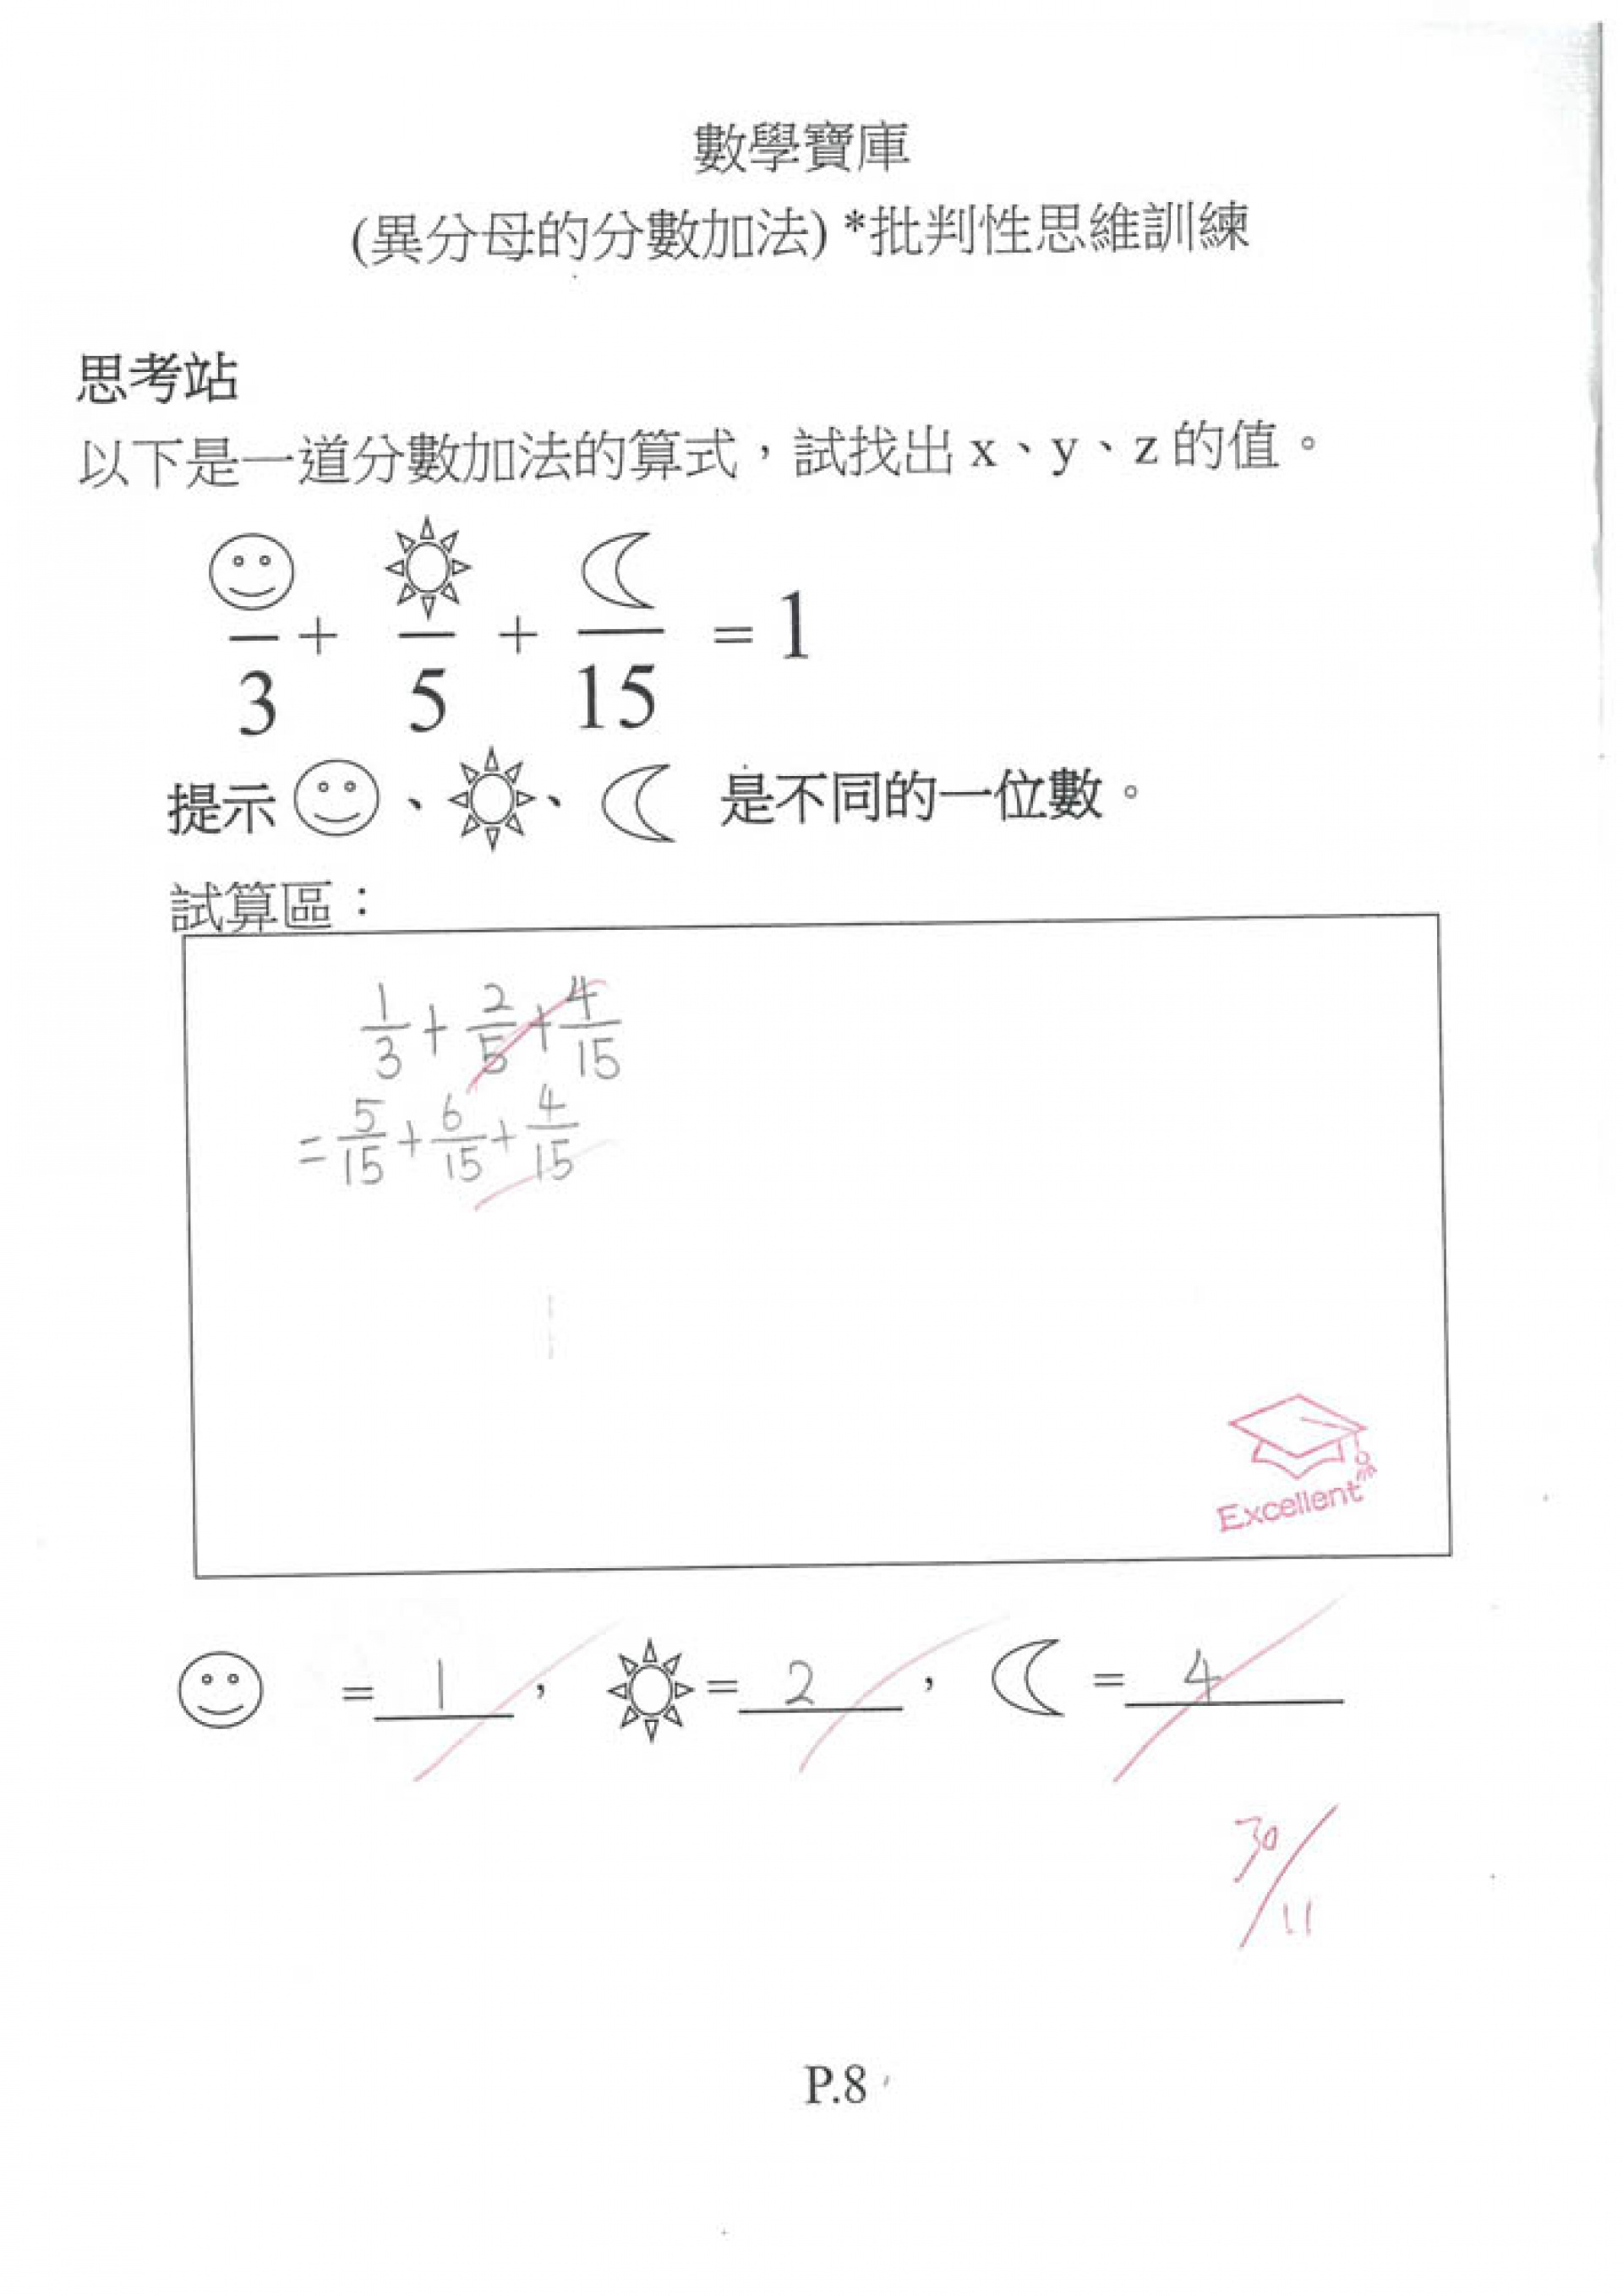 數學寶庫
(異分母的分數加法) *批判性思維訓練
思考站
以下是一道分數加法的算式，試找出 x、y、z 的值。
☺/3 + ☼/5 + ☾/15 = 1
提示 ☺、☼、☾ 是不同的一位數。
試算區：
1/3 + 2/5 + 4/15
= 5/15 + 6/15 + 4/15
Excellent
☺ = 1 ， ☼ = 2 ， ☾ = 4
30/11
P.8